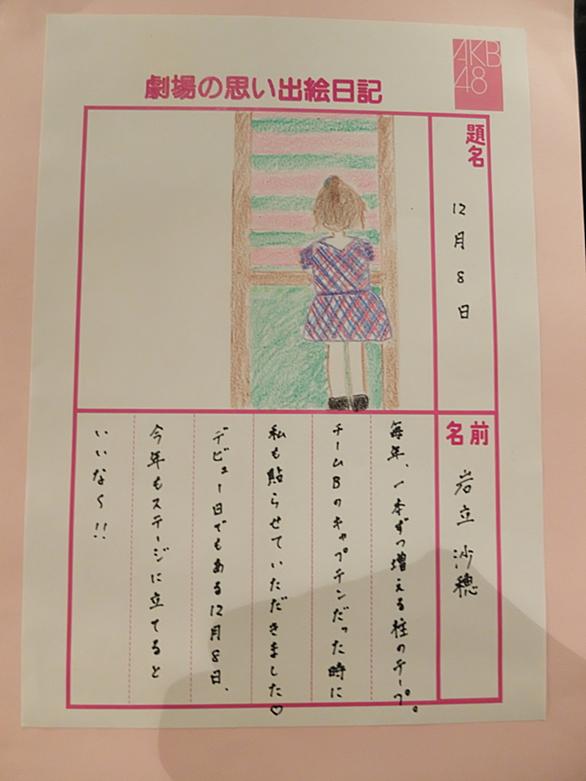 AKB
48
劇場の思い出絵日記
題名
12月8日
名前
岩立沙穂
毎年、一本ずつ増える柱のテープ。
チームBのキャプテンだった時に
私も貼らせていただきました♡
デビュー日でもある12月8日、
今年もステージに立てると
いいな〜!!